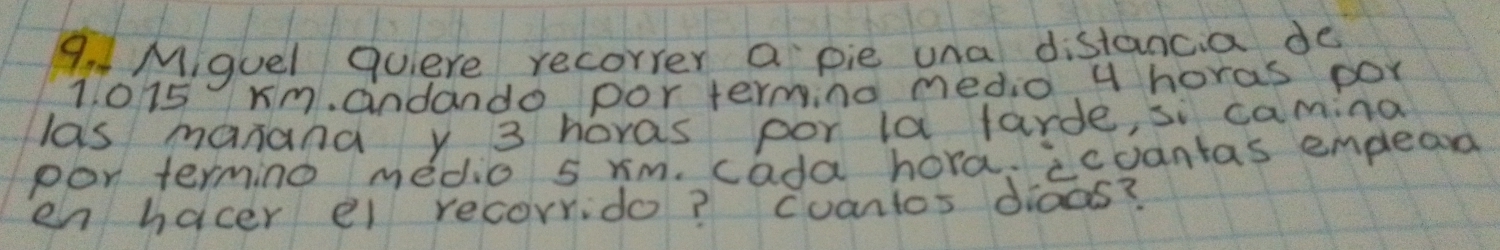 9.- Miguel quiere recorrer a pie una distancia de
1.015 km. andando por termino medio 4 horas por
las manana y 3 horas por la tarde, si camina
por termino medio 5 km. cada hora. ¿cuantas empleara
en hacer el recorrido? cuantos diaas?